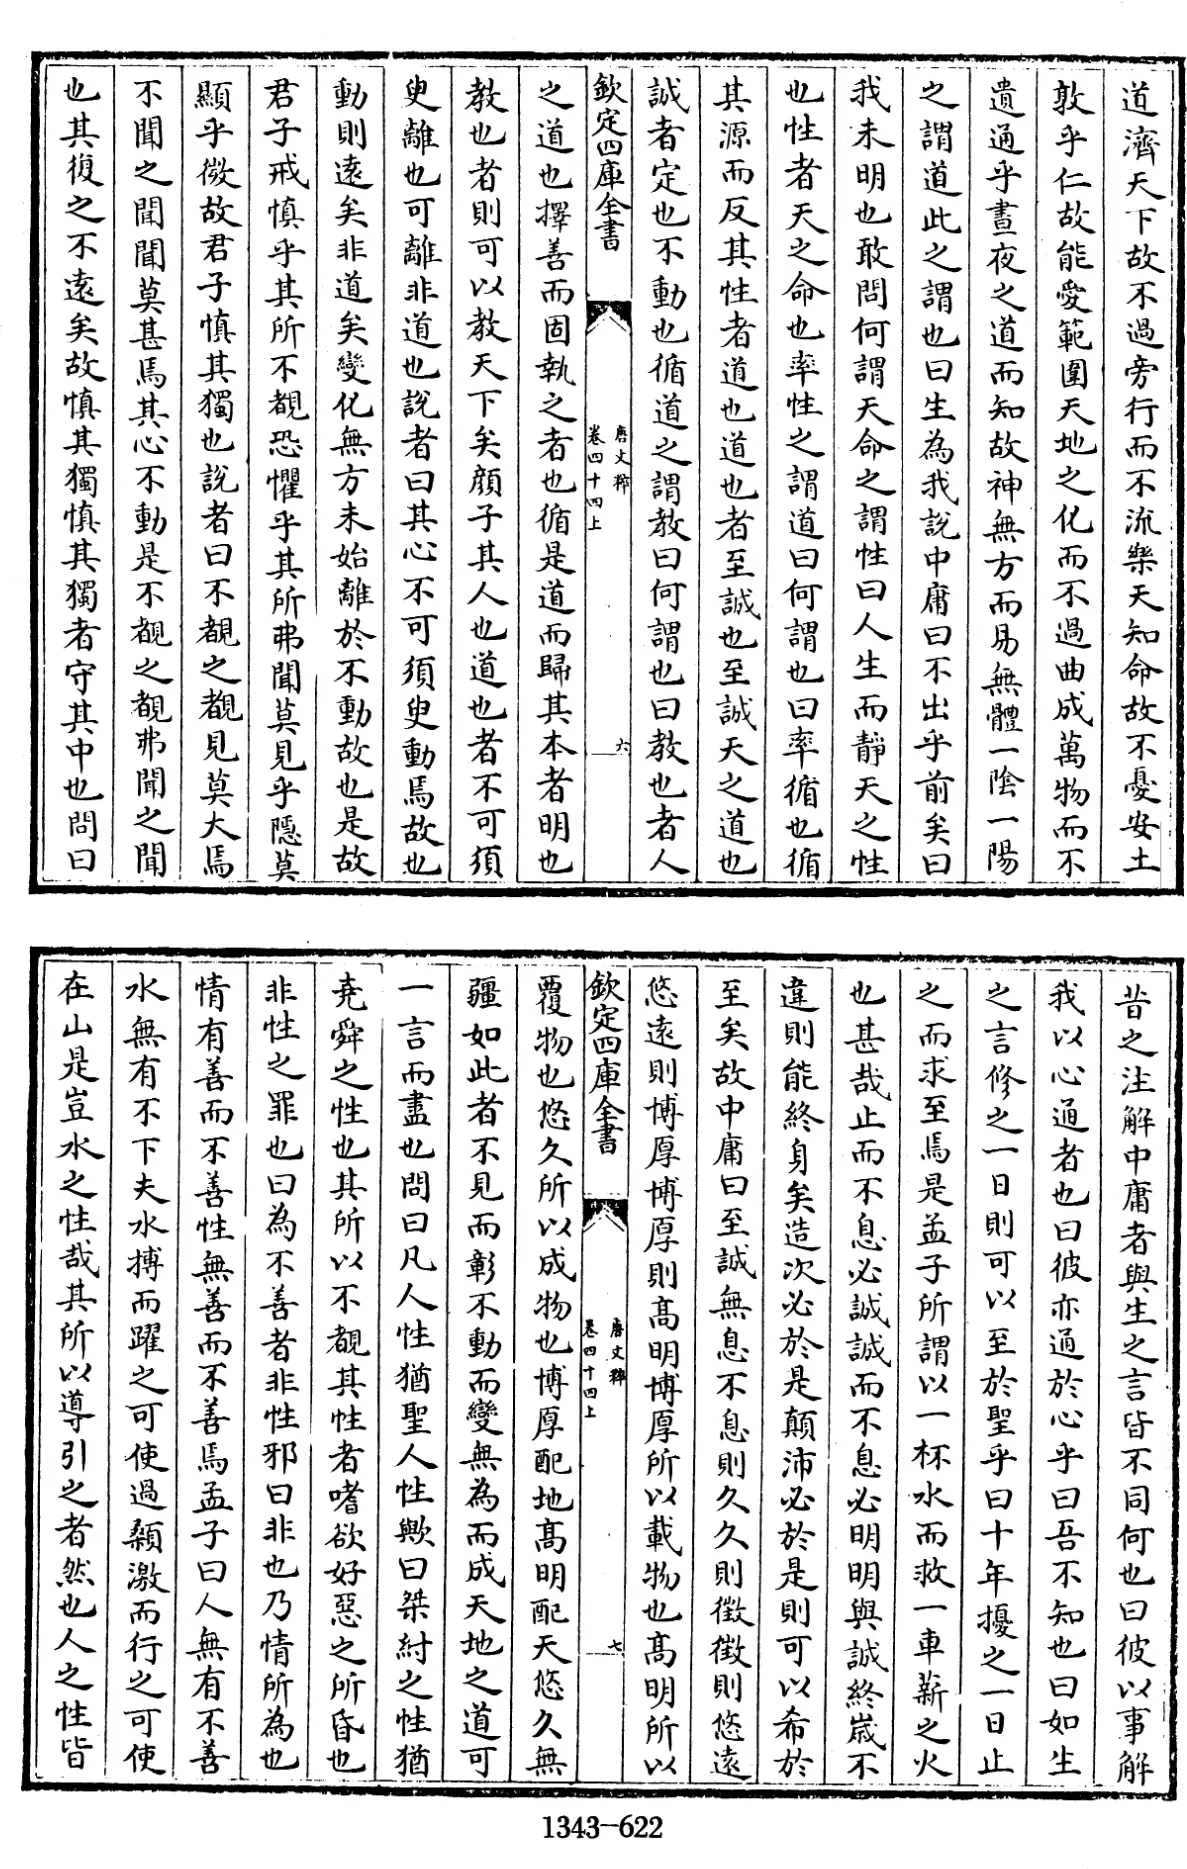 道濟天下故不過旁行而不流樂天知命故不憂安土
敦乎仁故能愛範圍天地之化而不過曲成萬物而不
遺通乎晝夜之道而知故神無方而易無體一陰一陽
之謂道此之謂也曰生為我說中庸曰不出乎前矣曰
我未明也敢問何謂天命之謂性曰人生而靜天之性
也性者天之命也率性之謂道曰何謂也曰率循也循
其源而反其性者道也道也者至誠也至誠天之道也
誠者定也不動也循道之謂教曰何謂也曰教也者人
欽定四庫全書
唐文粹
卷四十四上
六
之道也擇善而固執之者也循是道而歸其本者明也
教也者則可以教天下矣顔子其人也道也者不可須
臾離也可離非道也說者曰其心不可須臾動焉故也
動則逺矣非道矣變化無方未始離於不動故也是故
君子戒慎乎其所不覩恐懼乎其所弗聞莫見乎隱莫
顯乎微故君子慎其獨也說者曰不覩之覩見莫大焉
不聞之聞聞莫甚焉其心不動是不覩之覩弗聞之聞
也其復之不逺矣故慎其獨慎其獨者守其中也問曰
昔之注解中庸者與生之言皆不同何也曰彼以事解
我以心通者也曰彼亦通於心乎曰吾不知也曰如生
之言修之一日則可以至於聖乎曰十年擾之一日止
之而求至焉是孟子所謂以一杯水而救一車薪之火
也甚哉止而不息必誠誠而不息必明明與誠終嵗不
違則能終身矣造次必於是顛沛必於是則可以希於
至矣故中庸曰至誠無息不息則久久則徵徵則悠逺
悠逺則博厚博厚則髙明博厚所以載物也髙明所以
欽定四庫全書
唐文粹
卷四十四上
七
覆物也悠久所以成物也博厚配地髙明配天悠久無
疆如此者不見而彰不動而變無為而成天地之道可
一言而盡也問曰凡人性猶聖人性歟曰桀紂之性猶
堯舜之性也其所以不覩其性者嗜欲好惡之所昏也
非性之罪也曰為不善者非性邪曰非也乃情所為也
情有善而不善性無善而不善焉孟子曰人無有不善
水無有不下夫水搏而躍之可使過顙激而行之可使
在山是豈水之性哉其所以導引之者然也人之性皆
1343-622